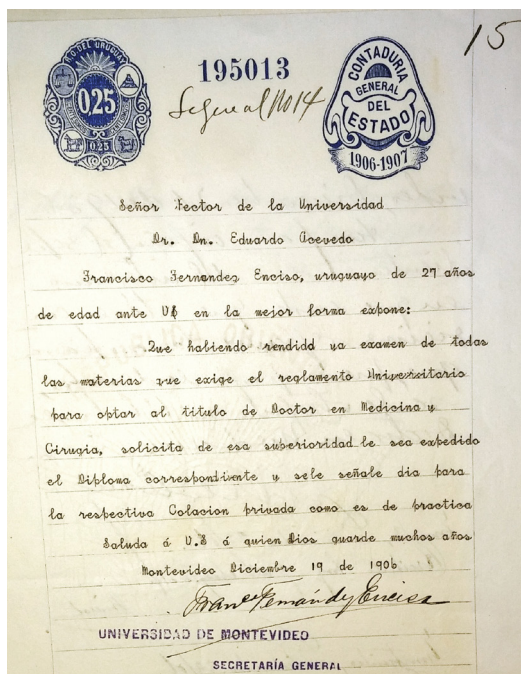 15
REP. DEL URUGUAY
0,25
0.25
195013
CONTADURIA
GENERAL
DEL
ESTADO
1906-1907
Señor Rector de la Universidad
Dr. Dn. Eduardo Acevedo
Francisco Fernandez Enciso, uruguayo de 27 años
de edad ante VS en la mejor forma expone:
Que habiendo rendido ya examen de todas
las materias que exige el reglamento Universitario
para optar al titulo de Doctor en Medicina y
Cirugia, solicita de esa superioridad le sea expedido
el Diploma correspondiente y sele señale dia para
la respectiva Colacion privada como es de practica
Saluda á V.S á quien Dios guarde muchos años
Montevideo Diciembre 19 de 1906
Franc. Fernández Enciso
UNIVERSIDAD DE MONTEVIDEO
SECRETARÍA GENERAL